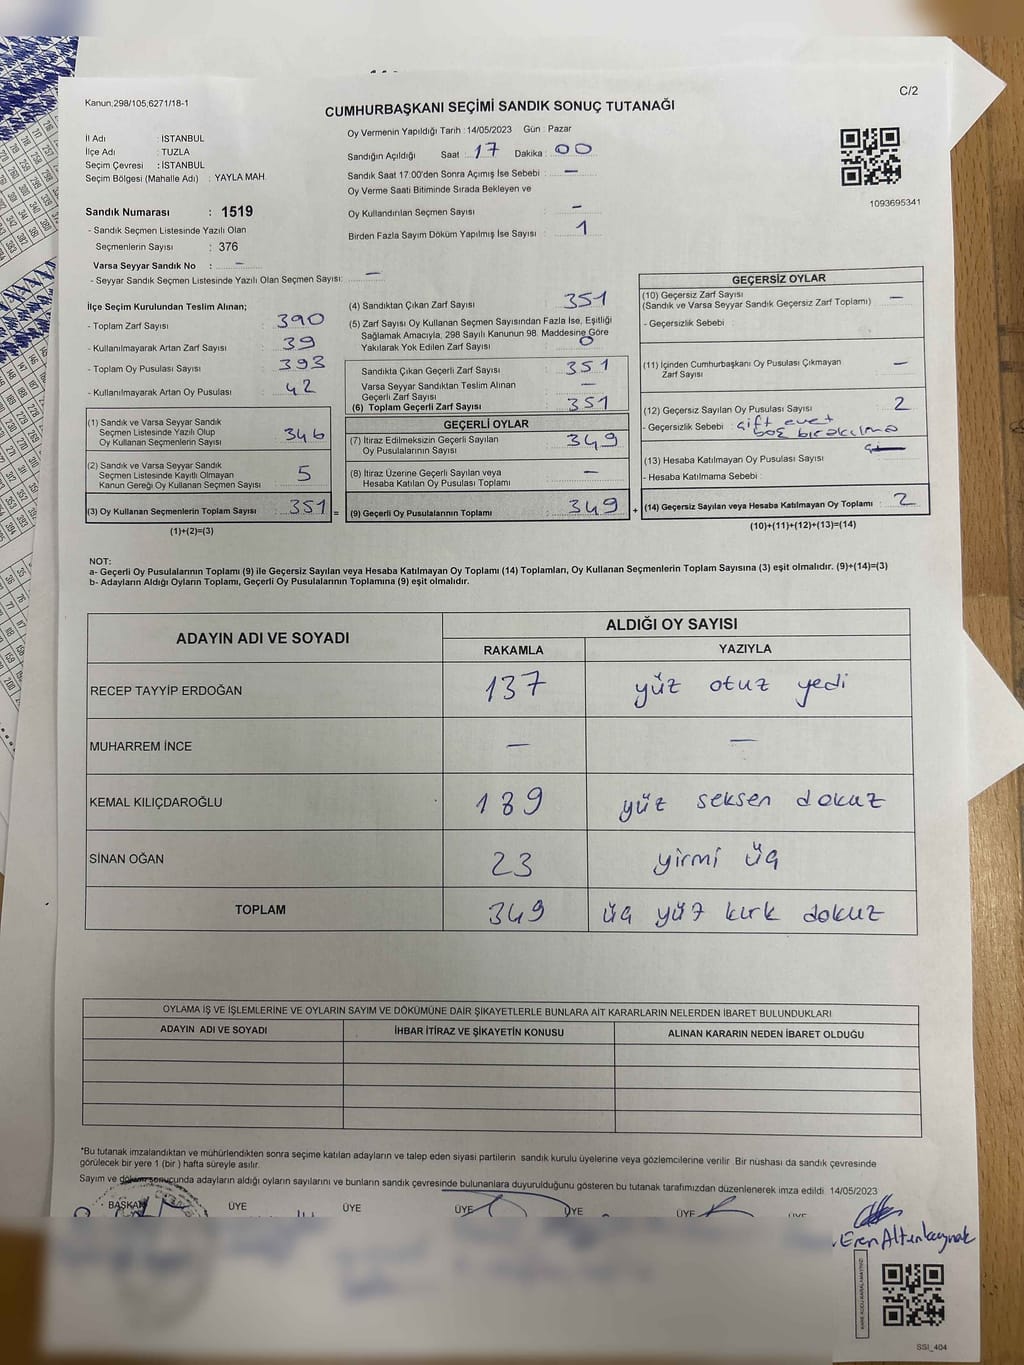 Kanun,298/105,6271/18-1
C/2
CUMHURBAŞKANI SEÇİMİ SANDIK SONUÇ TUTANAĞI
İl Adı : İSTANBUL
İlçe Adı : TUZLA
Seçim Çevresi : İSTANBUL
Seçim Bölgesi (Mahalle Adı) : YAYLA MAH.
Oy Vermenin Yapıldığı Tarih : 14/05/2023 Gün : Pazar
Sandığın Açıldığı Saat : 17 Dakika : 00
Sandık Saat 17:00'den Sonra Açımış İse Sebebi : —
Oy Verme Saati Bitiminde Sırada Bekleyen ve
Oy Kullandırılan Seçmen Sayısı : —
Birden Fazla Sayım Döküm Yapılmış İse Sayısı : 1
1093695341
Sandık Numarası : 1519
- Sandık Seçmen Listesinde Yazılı Olan
Seçmenlerin Sayısı : 376
Varsa Seyyar Sandık No : —
- Seyyar Sandık Seçmen Listesinde Yazılı Olan Seçmen Sayısı: —
İlçe Seçim Kurulundan Teslim Alınan;
- Toplam Zarf Sayısı : 390
- Kullanılmayarak Artan Zarf Sayısı : 39
- Toplam Oy Pusulası Sayısı : 393
- Kullanılmayarak Artan Oy Pusulası : 42
(1) Sandık ve Varsa Seyyar Sandık
Seçmen Listesinde Yazılı Olup
Oy Kullanan Seçmenlerin Sayısı : 346
(2) Sandık ve Varsa Seyyar Sandık
Seçmen Listesinde Kayıtlı Olmayan
Kanun Gereği Oy Kullanan Seçmen Sayısı : 5
(3) Oy Kullanan Seçmenlerin Toplam Sayısı : 351 =
(1)+(2)=(3)
(4) Sandıktan Çıkan Zarf Sayısı : 351
(5) Zarf Sayısı Oy Kullanan Seçmen Sayısından Fazla İse, Eşitliği
Sağlamak Amacıyla, 298 Sayılı Kanunun 98. Maddesine Göre
Yakılarak Yok Edilen Zarf Sayısı : 0
Sandıkta Çıkan Geçerli Zarf Sayısı : 351
Varsa Seyyar Sandıktan Teslim Alınan
Geçerli Zarf Sayısı : —
(6) Toplam Geçerli Zarf Sayısı : 351
GEÇERLİ OYLAR
(7) İtiraz Edilmeksizin Geçerli Sayılan
Oy Pusulalarının Sayısı : 349
(8) İtiraz Üzerine Geçerli Sayılan veya
Hesaba Katılan Oy Pusulası Toplamı : —
(9) Geçerli Oy Pusulalarının Toplamı : 349 +
GEÇERSİZ OYLAR
(10) Geçersiz Zarf Sayısı
(Sandık ve Varsa Seyyar Sandık Geçersiz Zarf Toplamı) : —
- Geçersizlik Sebebi :
(11) İçinden Cumhurbaşkanı Oy Pusulası Çıkmayan
Zarf Sayısı : —
(12) Geçersiz Sayılan Oy Pusulası Sayısı : 2
- Geçersizlik Sebebi : çift evet
boş bırakılma
(13) Hesaba Katılmayan Oy Pusulası Sayısı : —
- Hesaba Katılmama Sebebi :
(14) Geçersiz Sayılan veya Hesaba Katılmayan Oy Toplamı : 2
(10)+(11)+(12)+(13)=(14)
NOT:
a- Geçerli Oy Pusulalarının Toplamı (9) ile Geçersiz Sayılan veya Hesaba Katılmayan Oy Toplamı (14) Toplamları, Oy Kullanan Seçmenlerin Toplam Sayısına (3) eşit olmalıdır. (9)+(14)=(3)
b- Adayların Aldığı Oyların Toplamı, Geçerli Oy Pusulalarının Toplamına (9) eşit olmalıdır.
ADAYIN ADI VE SOYADI
ALDIĞI OY SAYISI
RAKAMLA YAZIYLA
RECEP TAYYİP ERDOĞAN 137 yüz otuz yedi
MUHARREM İNCE — —
KEMAL KILIÇDAROĞLU 189 yüz seksen dokuz
SİNAN OĞAN 23 yirmi üç
TOPLAM 349 üç yüz kırk dokuz
OYLAMA İŞ VE İŞLEMLERİNE VE OYLARIN SAYIM VE DÖKÜMÜNE DAİR ŞİKAYETLERLE BUNLARA AİT KARARLARIN NELERDEN İBARET BULUNDUKLARI
ADAYIN ADI VE SOYADI İHBAR İTİRAZ VE ŞİKAYETİN KONUSU ALINAN KARARIN NEDEN İBARET OLDUĞU
*Bu tutanak imzalandıktan ve mühürlendikten sonra seçime katılan adayların ve talep eden siyasi partilerin sandık kurulu üyelerine veya gözlemcilerine verilir Bir nüshası da sandık çevresinde
görülecek bir yere 1 (bir ) hafta süreyle asılır.
Sayım ve döküm sonucunda adayların aldığı oyların sayılarını ve bunların sandık çevresinde bulunanlara duyurulduğunu gösteren bu tutanak tarafımızdan düzenlenerek imza edildi 14/05/2023
BAŞKAN ÜYE ÜYE ÜYE ÜYE ÜYE ÜYE
Eren Altunkaynak
SSI_404